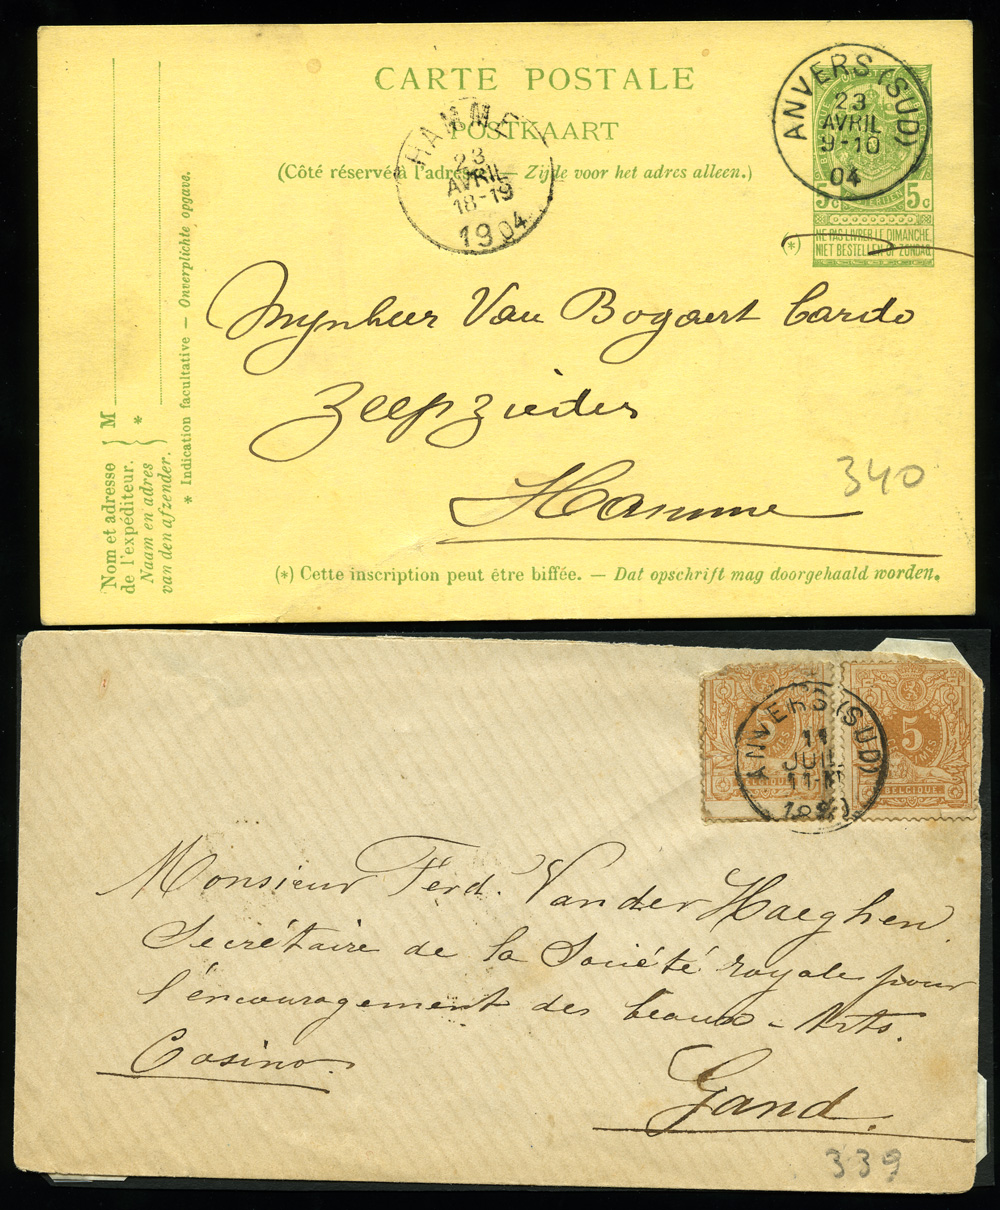 CARTE POSTALE
POSTKAART
(Côté réservé à l'adresse. — Zijde voor het adres alleen.)
HAMME
23
AVRIL
18-19
1904
ANVERS (SUD)
23
AVRIL
9-10
04
5c 5c
(*) NE PAS LIVRER LE DIMANCHE
NIET BESTELLEN OP ZONDAG
Mynheer Van Bogaert Cardo
Zeepzieder
Hamme
340
M
*
Nom et adresse
de l'expéditeur.
Naam en adres
van den afzender.
* Indication facultative — Onverplichte opgave.
(*) Cette inscription peut être biffée. — Dat opschrift mag doorgehaald worden.
ANVERS (SUD)
11
JUIL
5
BELGIQUE
Monsieur Ferd. Van der Haeghen
Secrétaire de la Société royale pour
l'encouragement des beaux-Arts.
Casino.
Gand.
339